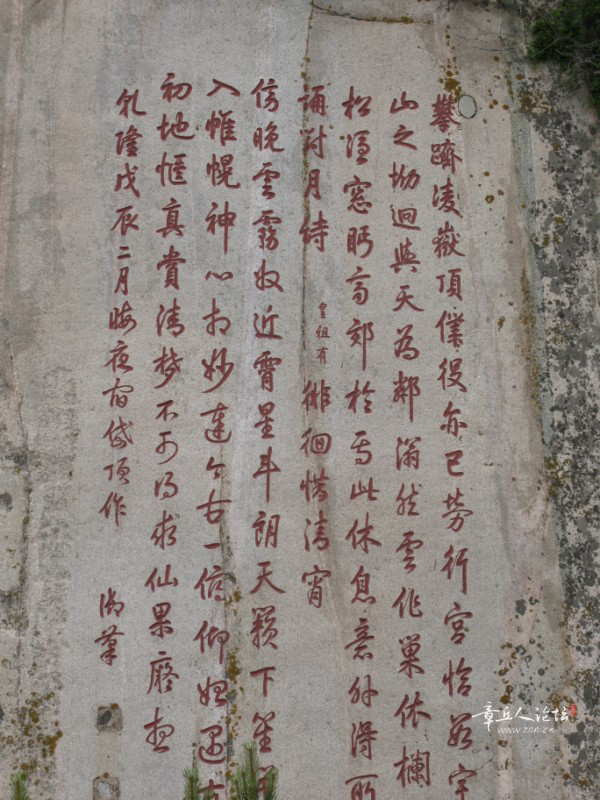 攀躋淩嶽頂僕役亦已勞行宮恰數宇
山之坳迥與天為鄰滃然雲作巢依欄
松隱窓眄高郊於焉此休息意外得所
誦對月詩 皇祖有 徘徊惜清宵
傍晚雲霧收近霄星斗朗天籟下笙
入帷幌神心相妙達今古一俯仰遇
初地愜真賞清夢不可得求仙果想
乾隆戊辰二月晦夜宿岱頂作
御筆
章丘人论坛